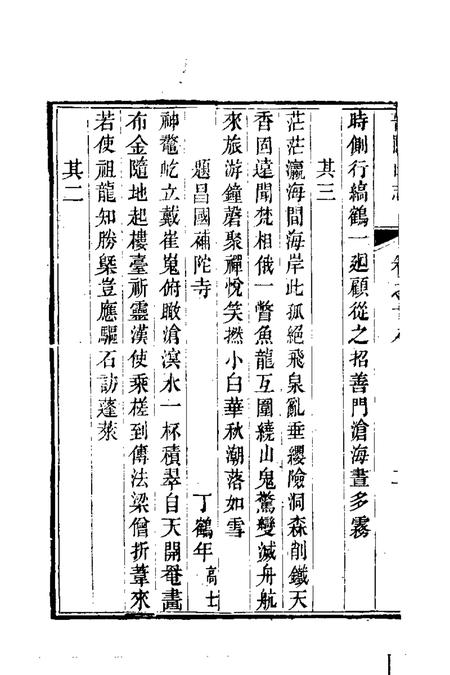 時側行縞鶴一廻顧從之招善門滄海晝多霧
其三
茫茫瀛海間海岸此孤絕飛泉亂垂纓險洞森削鐵天
香固遠聞梵相俄一瞥魚龍互圍繞山鬼驚變滅舟航
來旅游鐘磬聚禪悅笑撚小白華秋潮落如雪
題昌國補陀寺
丁鶴年高士
神鼇屹立戴崔嵬俯瞰滄溟水一杯積翠自天開罨畫
布金隨地起樓臺祈靈漢使乘槎到傳法梁僧折葦來
若使祖龍知勝槩豈應驅石訪蓬萊
其二